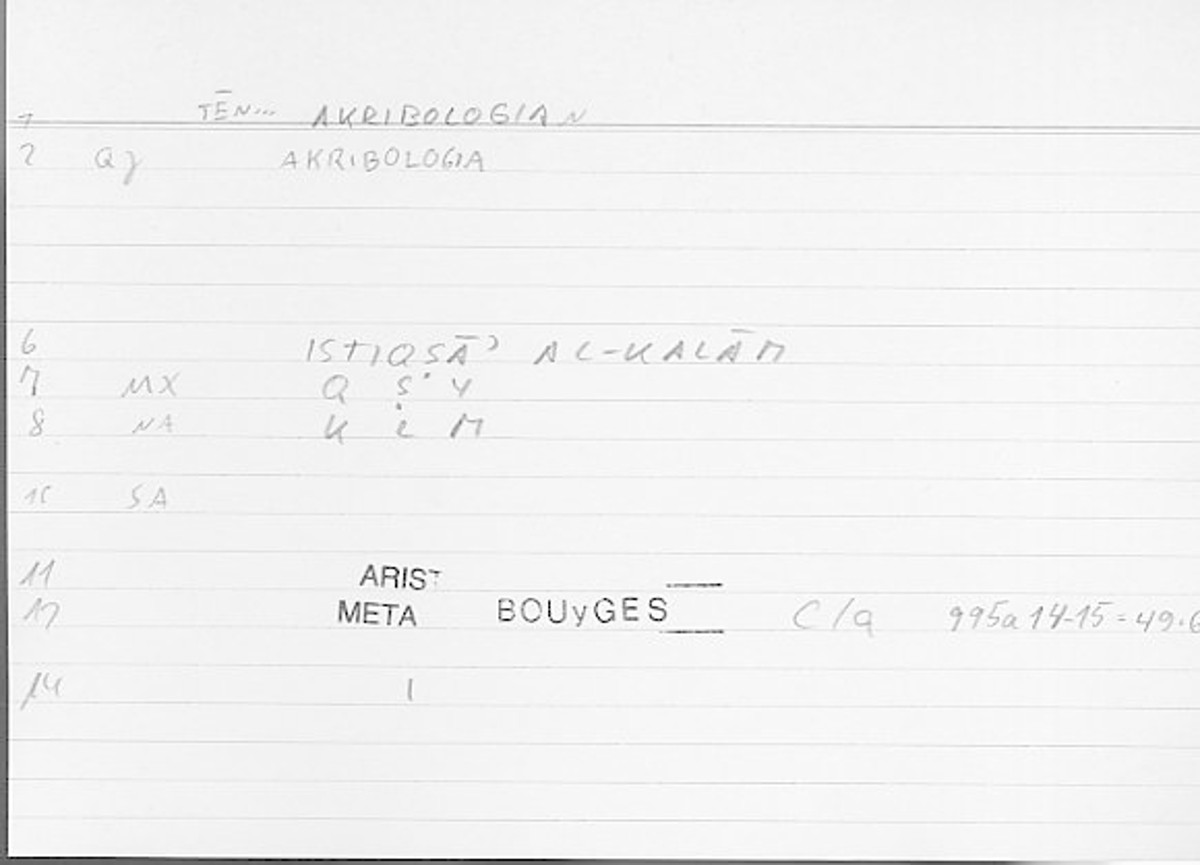 1 TĒN... AKRIBOLOGIAN
2 Qγ AKRIBOLOGIA
6 ISTIQṢĀʾ AL-KALĀM
7 MX Q Ṣ Y
8 NA K L M
10 SA
11 ARIST
12 META BOUyGES C/a 995a 14-15 = 49.6
14 1